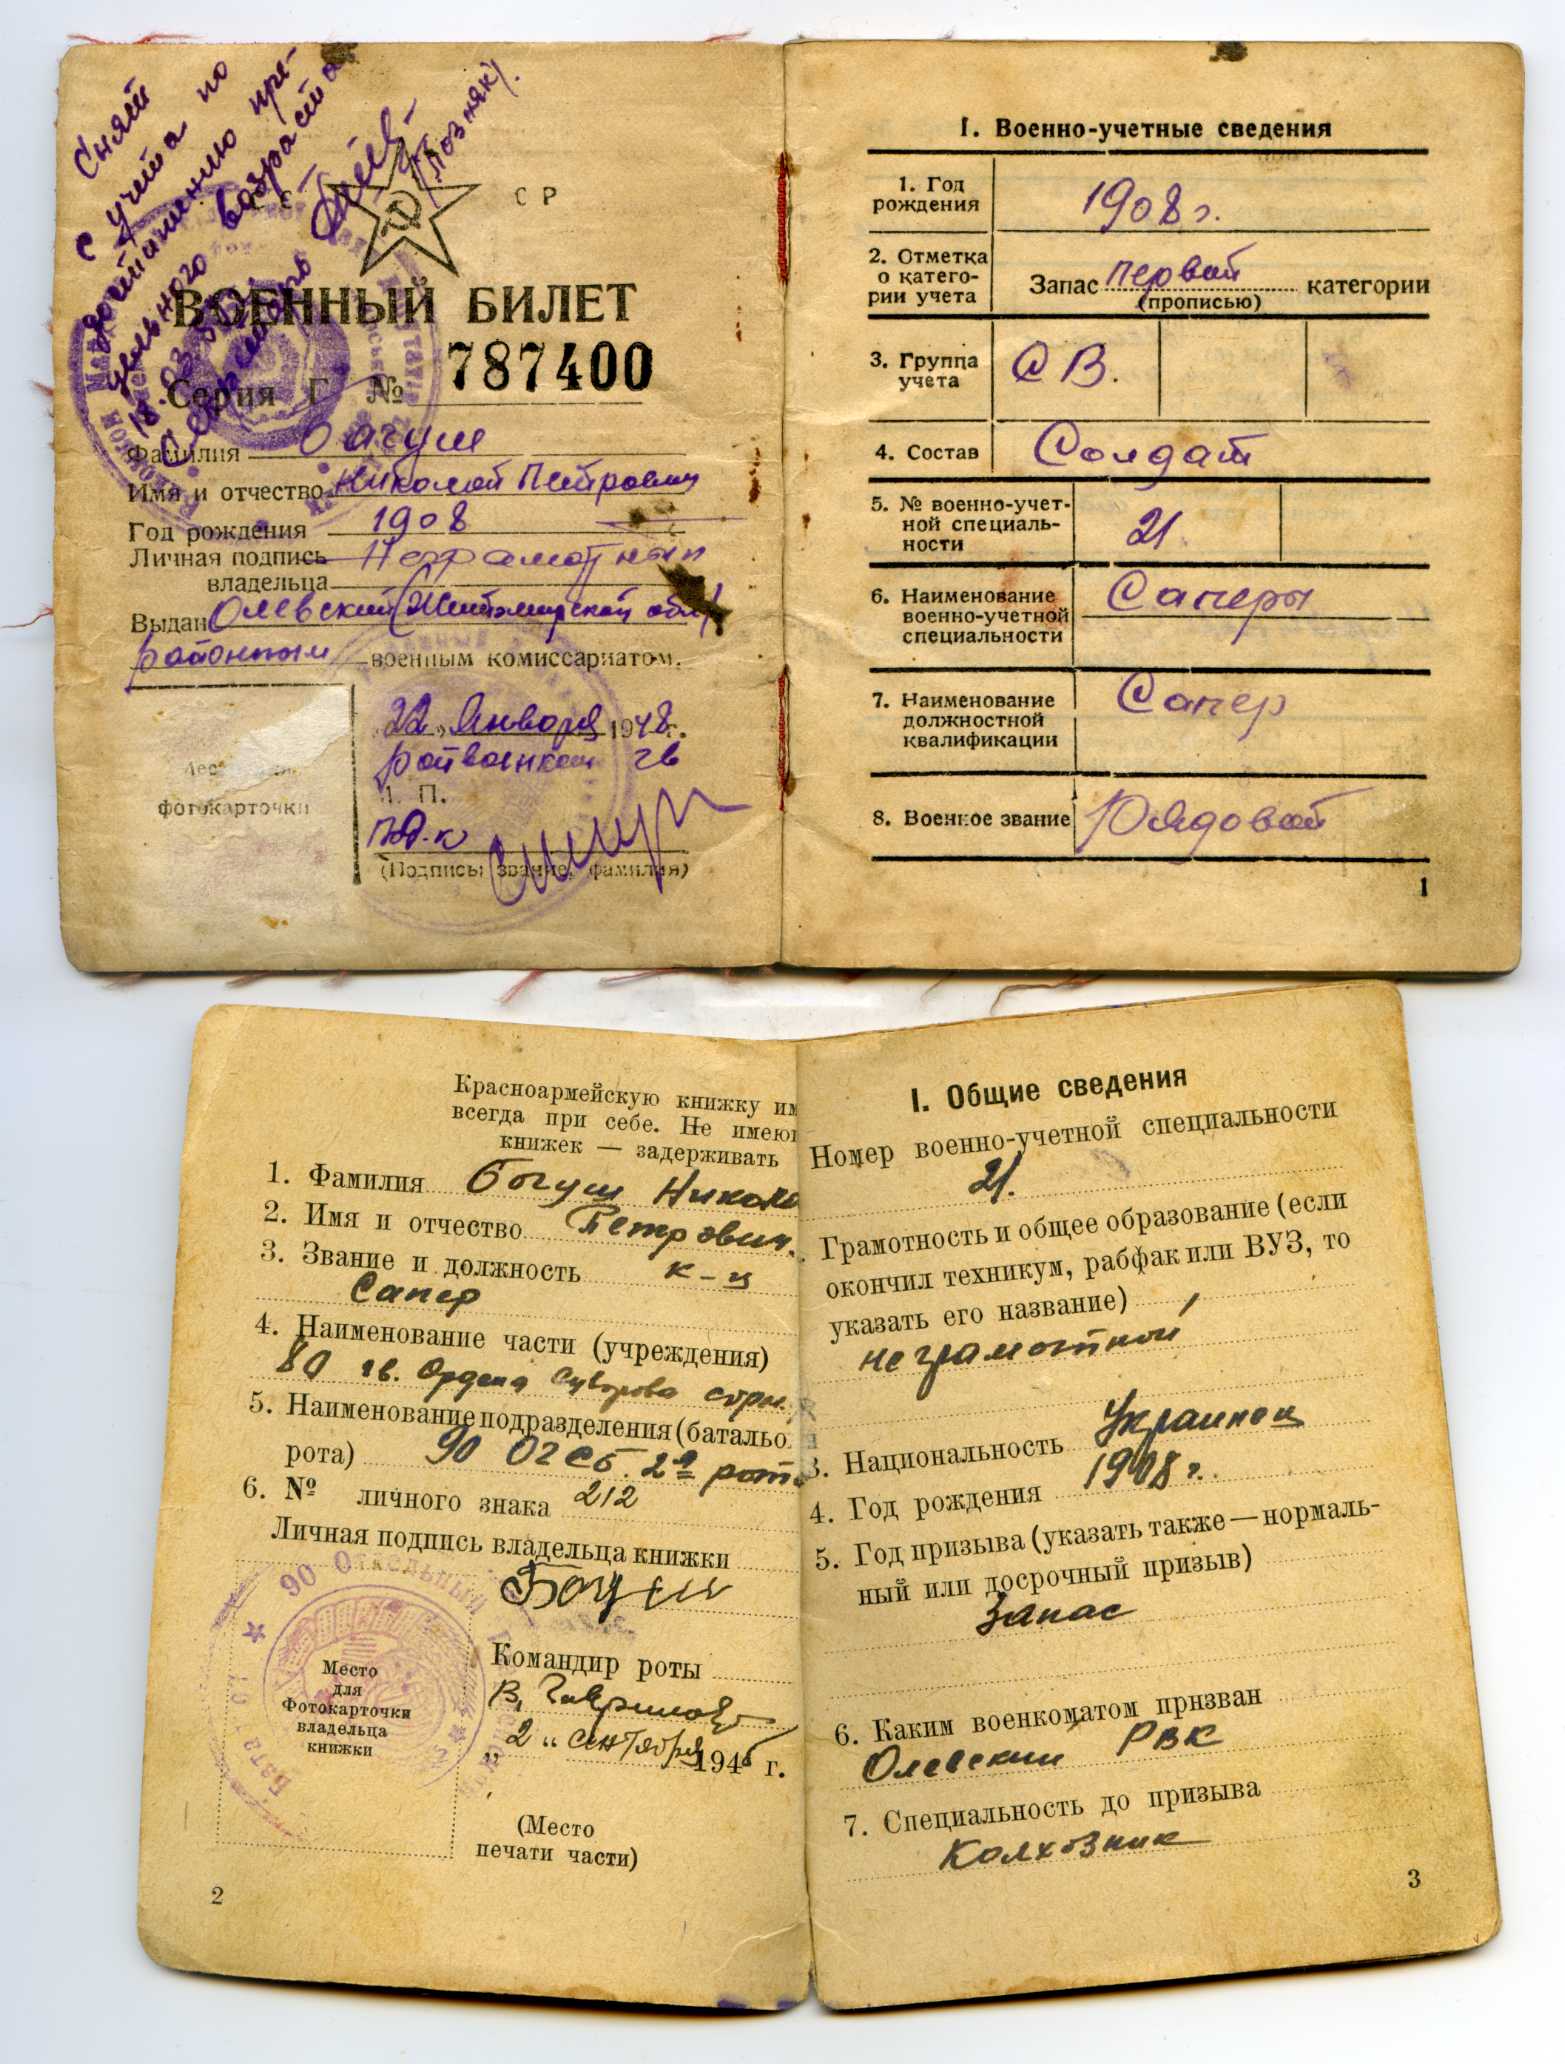 Снят
с учета по
достижению пре-
дельного возраста
18.03
Секретарь
(Позняк).
СР
ВОЕННЫЙ БИЛЕТ
Серия Г № 787400
Фамилия Богуш
Имя и отчество Николай Петрович
Год рождения 1908
Личная подпись Неграмотный
владельца
Выдан Олевский (Житомирской обл)
районным военным комиссариатом.
"22" Января 1948 г.
Райвоенком гв
М. П.
п/п-к
(Подпись, звание, фамилия)
фотокарточки
I. Военно-учетные сведения
1. Год
рождения
1908 г.
2. Отметка
о катего-
рии учета
Запас первой категории
(прописью)
3. Группа
учета
СВ.
4. Состав
Солдат
5. № военно-учет-
ной специаль-
ности
21
6. Наименование
военно-учетной
специальности
Саперы
7. Наименование
должностной
квалификации
Сапер
8. Военное звание
Рядовой
1
Красноармейскую книжку им
всегда при себе. Не имею
книжек — задерживать
1. Фамилия Богуш Никола
2. Имя и отчество Петрович.
3. Звание и должность к-ц
Сапер
4. Наименование части (учреждения)
80 гв. Ордена Суворова стрл.
5. Наименование подразделения (батальо
рота) 90 ОГСБ. 2я рота
6. № личного знака 212
Личная подпись владельца книжки
Богуш
90 Отдельный
Место
для
Фотокарточки
владельца
книжки
Командир роты
В. Гаврилов
„2" сентября 1945 г.
(Место
печати части)
2
I. Общие сведения
Номер военно-учетной специальности
21.
Грамотность и общее образование (если
окончил техникум, рабфак или ВУЗ, то
указать его название)
неграмотной
3. Национальность Украинец
4. Год рождения 1908 г.
5. Год призыва (указать также — нормаль-
ный или досрочный призыв)
Запас
6. Каким военкоматом призван
Олевский РВК
7. Специальность до призыва
Колхозник
3